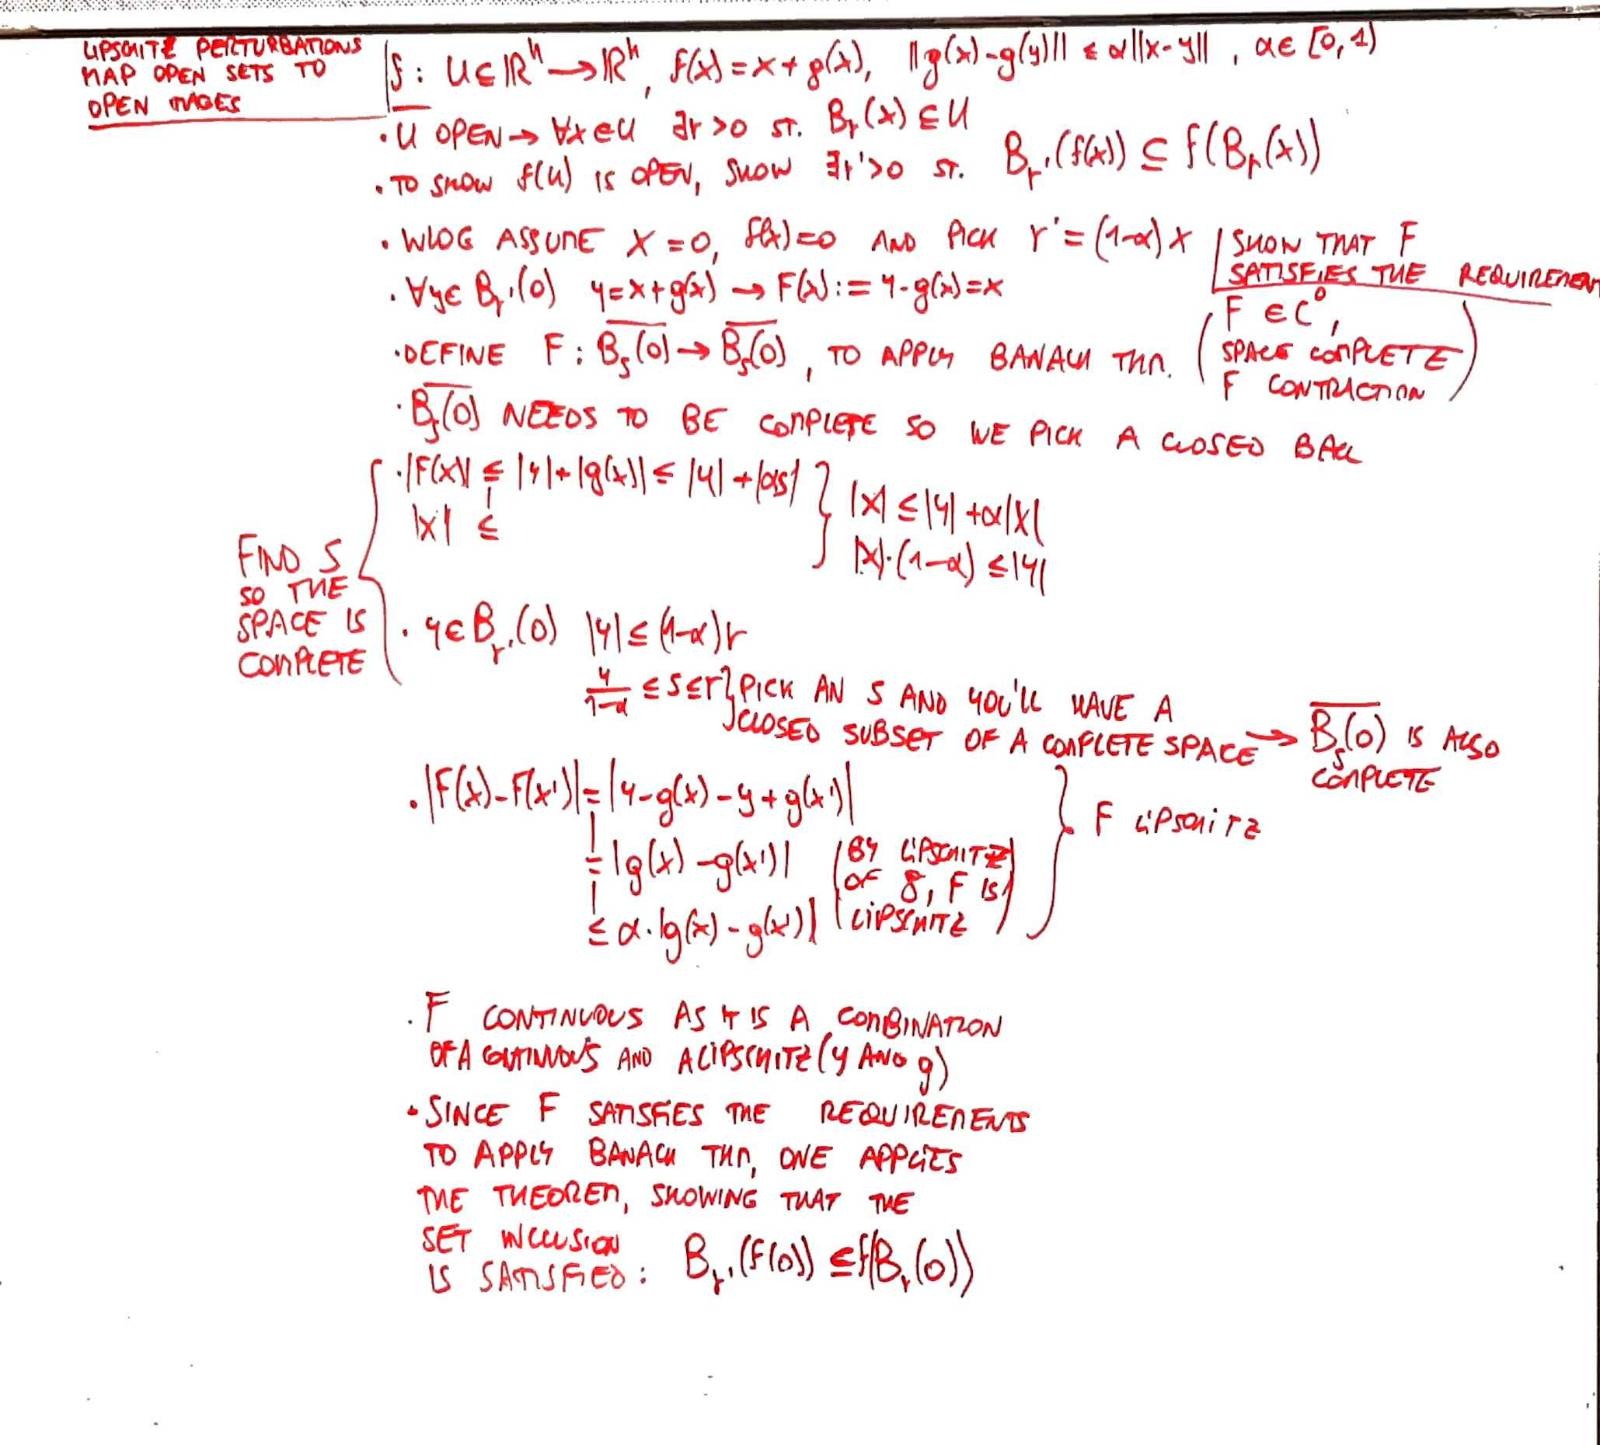 LIPSCHITZ PERTURBATIONS
MAP OPEN SETS TO
OPEN IMAGES
f: U⊆ℝⁿ→ℝⁿ, f(x)=x+g(x), ||g(x)-g(y)|| ≤ α||x-y||, α∈[0,1)
• U OPEN → ∀x∈U ∃r>0 ST. B_r(x)⊆U
• TO SHOW f(U) IS OPEN, SHOW ∃r'>0 ST. B_r'(f(x)) ⊆ f(B_r(x))
• WLOG ASSUME X=0, f(x)=0 AND PICK r'=(1-α)r
SHOW THAT F
SATISFIES THE REQUIREMEN
• ∀y∈B_r'(0) y=x+g(x) → F(x):=y-g(x)=x
• DEFINE F: \overline{B_s(0)}→\overline{B_s(0)}, TO APPLY BANACH THM.
(F∈C⁰,
SPACE COMPLETE
F CONTRACTION)
• \overline{B_s(0)} NEEDS TO BE COMPLETE SO WE PICK A CLOSED BALL
FIND S
SO THE
SPACE IS
COMPLETE
• |F(x)| ≤ |y|+|g(x)| ≤ |y|+|αs|
|x| ≤
|x| ≤ |y|+α|x|
|x|·(1-α) ≤ |y|
• y∈B_r'(0) |y| ≤ (1-α)r
y/(1-α) ≤ s ≤ r} PICK AN S AND YOU'LL HAVE A
CLOSED SUBSET OF A COMPLETE SPACE → \overline{B_s(0)} IS ALSO
COMPLETE
• |F(x)-F(x')| = |y-g(x)-y+g(x')|
= |g(x)-g(x')|
≤ α·|g(x)-g(x')|
(BY LIPSCHITZ
OF g, F IS
LIPSCHITZ)
F LIPSCHITZ
• F CONTINUOUS AS IT IS A COMBINATION
OF A CONTINUOUS AND A LIPSCHITZ (y AND g)
• SINCE F SATISFIES THE REQUIREMENTS
TO APPLY BANACH THM, ONE APPLIES
THE THEOREM, SHOWING THAT THE
SET INCLUSION
IS SATISFIED: B_r'(f(0)) ⊆ f(B_r(0))